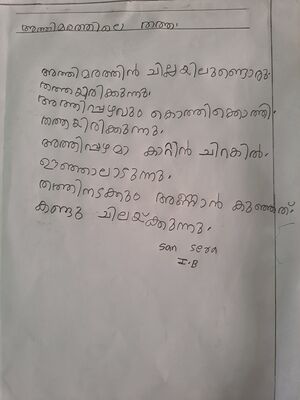 അത്തിമരത്തിലെ തത്ത.
അത്തിമരത്തിൻ ചില്ലയിലുണ്ടൊരു
തത്തയിരിക്കുന്നു.
അത്തിപ്പഴവും കൊത്തിക്കൊത്തി.
തത്തയിരിക്കുന്നു.
അത്തിപ്പഴമാ കാറ്റിൻ ചിറകിൽ.
ഊഞ്ഞാലാടുന്നു.
തത്തിനടക്കും അണ്ണാൻ കുഞ്ഞത്.
കണ്ടു ചിലയ്ക്കുന്നു.
san sera
I.B